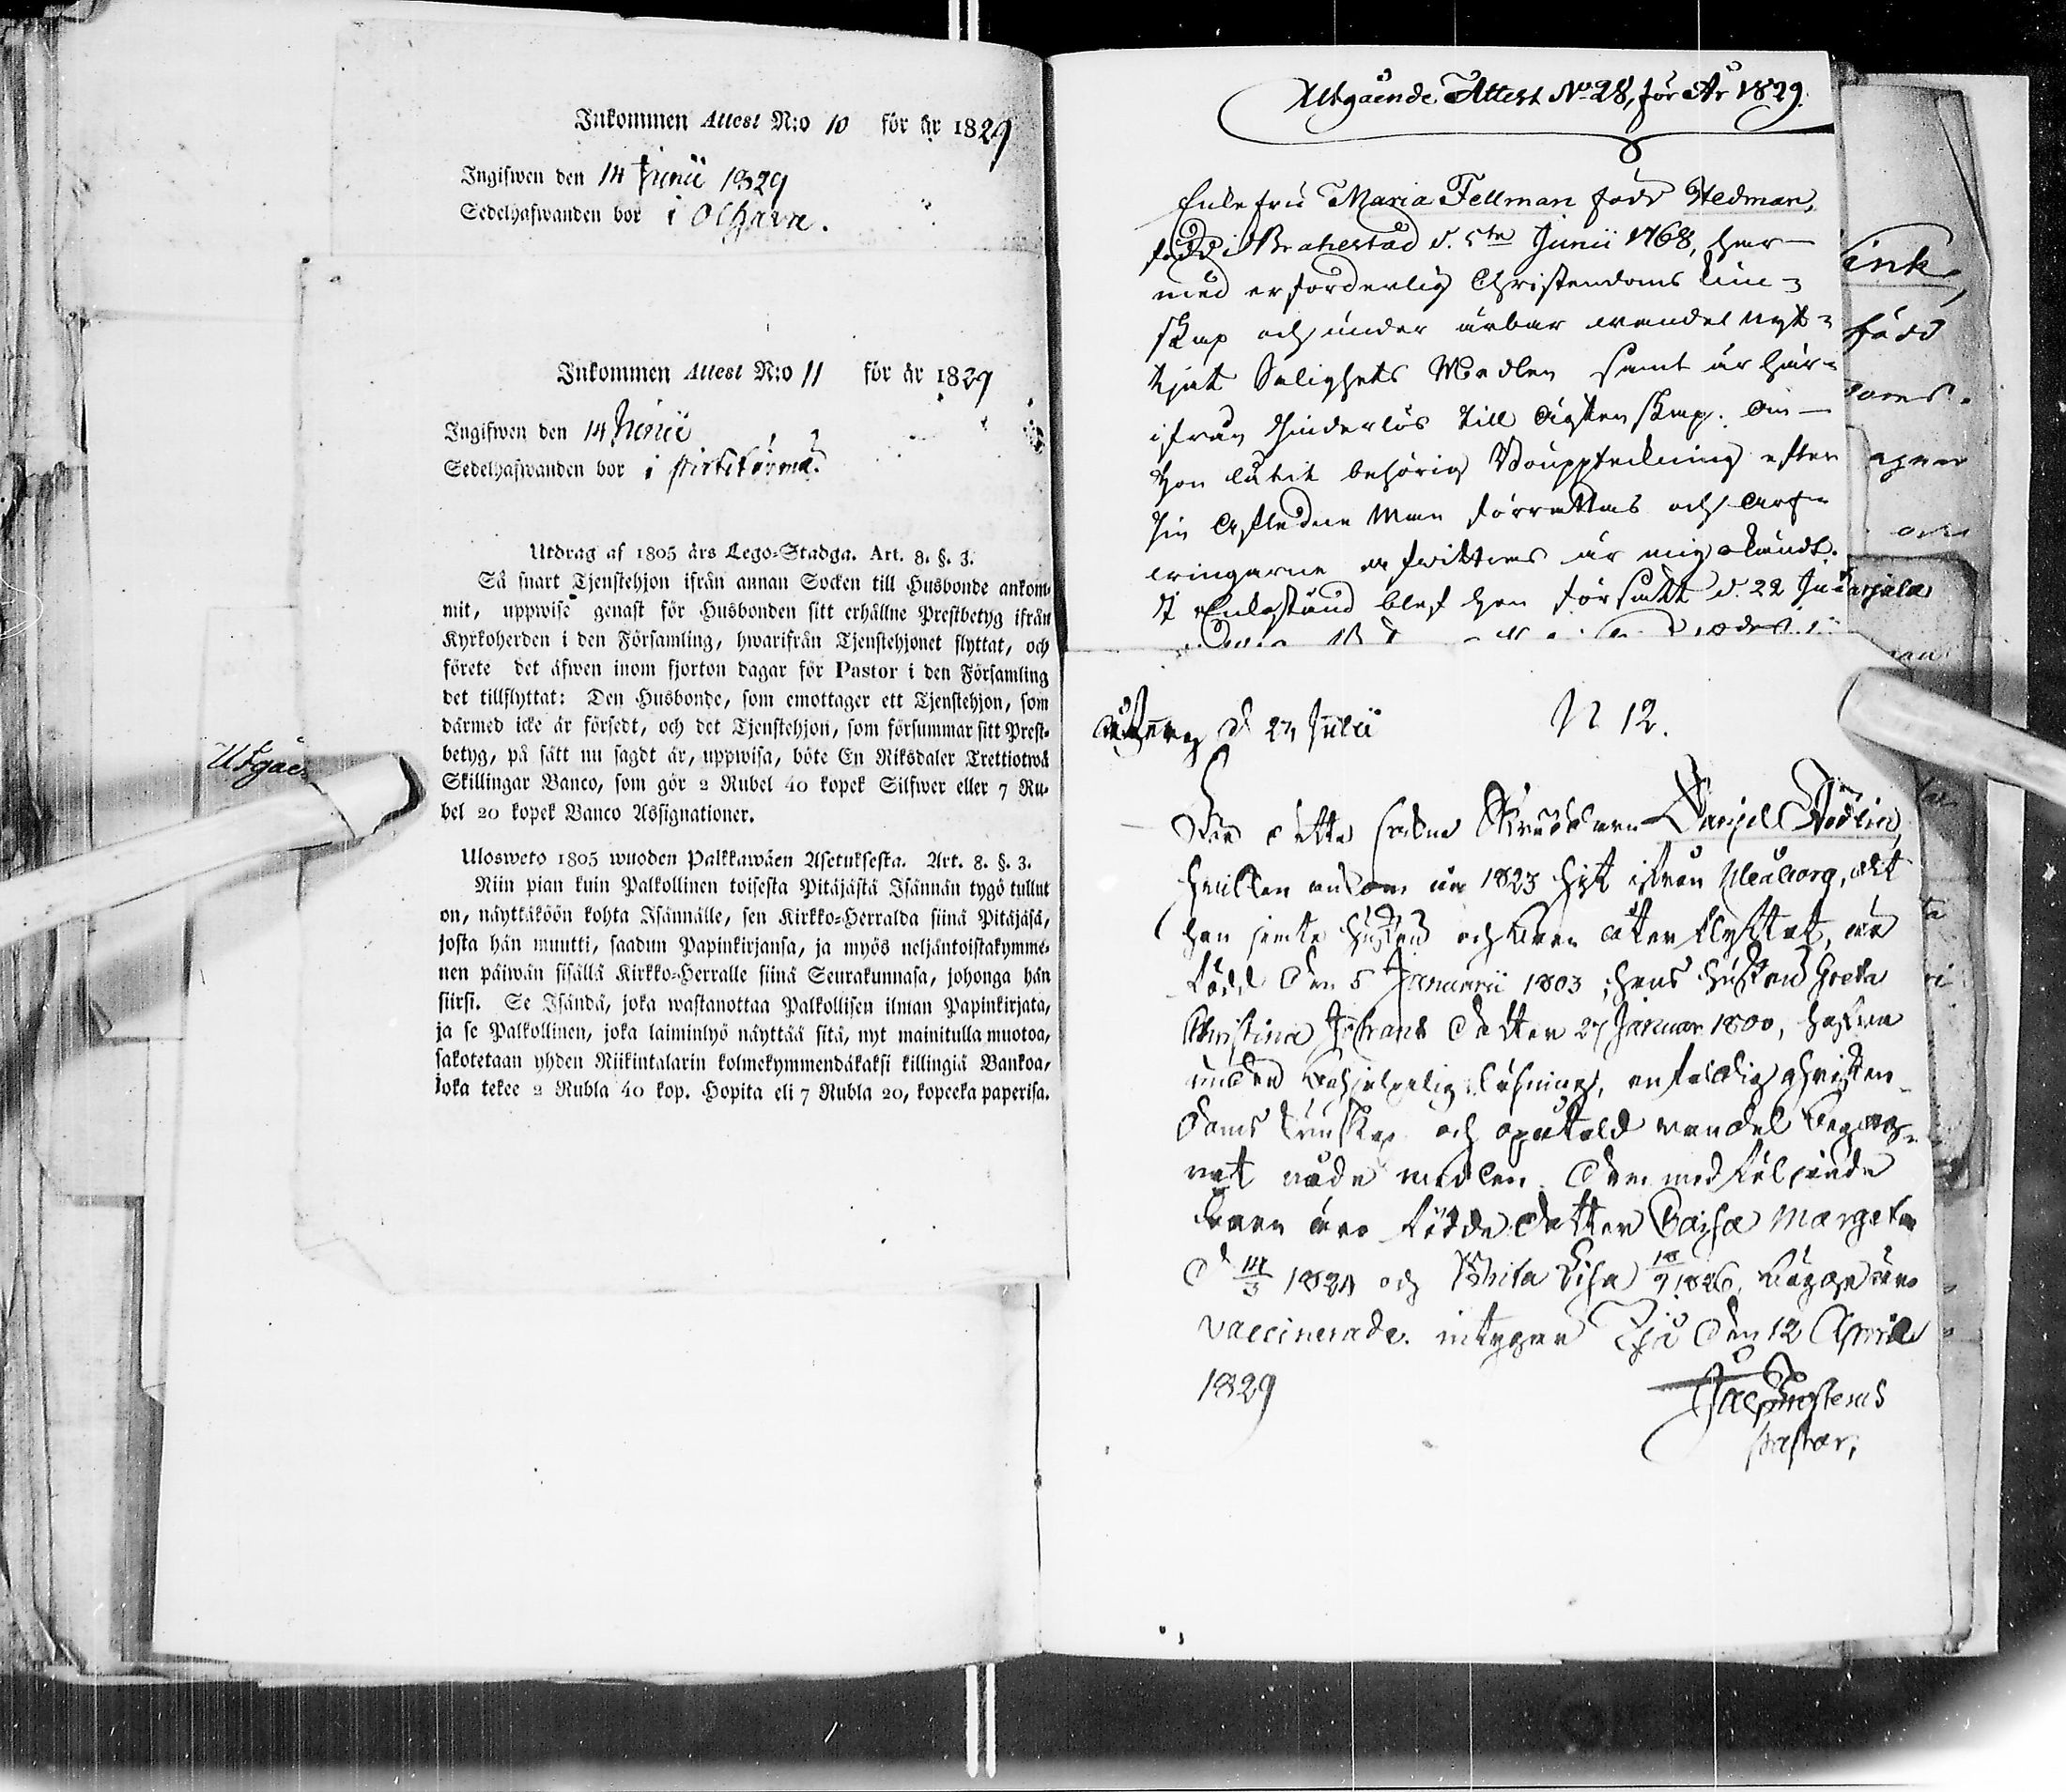 Inkommen Attest N:o 10 för år 1829
Ingifwen den 14 Junii 1829
Sedelhafwanden bor i Olhava.
Inkommen Attest N:o 11 för år 1829
Ingifwen den 14 Junii
Sedelhafwanden bor i
Utdrag af 1805 års Lego-Stadga. Art. 8. §. 3.
Så snart Tjenstehjon ifrån annan Socken till Husbonde ankom-
mit, uppwise genast för Husbonden sitt erhållne Prestbetyg ifrån
Kyrkoherden i den Församling, hwarifrån Tjenstehjonet flyttat, och
förete det äfwen inom fjorton dagar för Pastor i den Församling
det tillflyttat: Den Husbonde, som emottager ett Tjenstehjon, som
därmed icke är försedt, och det Tjenstehjon, som försummar sitt Prest-
betyg, på sätt nu sagdt är, uppwisa, böte En Riksdaler Trettiotwå
Skillingar Banco, som gör 2 Rubel 40 kopek Silfwer eller 7 Ru-
bel 20 kopek Banco Assignationer.
Ulosweto 1805 wuoden Palkkawäen Asetuksesta. Art. 8. §. 3.
Niin pian kuin Palkollinen toisesta Pitäjästä Isännän tygö tullut
on, näyttäköön kohta Isännälle, sen Kirkko-Herralda siinä Pitäjäsä,
josta hän muutti, saadun Papinkirjansa, ja myös neljäntoistakymme-
nen päiwän sisällä Kirkko-Herralle siinä Seurakunnasa, johonga hän
siirsi. Se Isändä, joka wastanottaa Palkollisen ilman Papinkirjata,
ja se Palkollinen, joka laiminlyö näyttää sitä, nyt mainitulla muotoa,
sakotetaan yhden Riikintalarin kolmekymmendäkaksi killingiä Bankoa,
joka tekee 2 Rubla 40 kop. Hopita eli 7 Rubla 20, kopeeka paperisa.
Utgåe
Utgående Attest No 28, för År 1829.
Enkefru Maria Fellman född Stedman,
född i Brahestad d. 5te Junii 1768, har
med erforderlig Christendoms kun-
skap och under ärbar wandel nyt-
tjat Salighets Medlen samt är här-
ifrån hinderlös till Ägtenskap. Om
hon låtit behörig Bouppteckning efter
sin Aflidne Man förrättas och arf-
wingarne afwittras är mig okändt.
I Enkestånd blef hon försatt d. 22
ink,
född
doms
N 12.
d 27 Julii
detta Skräddaren Danjel Södlin,
hvilken ankom år 1823 hit ifrån Uleåborg, dit
han jemte hustru och barn åter flyttat, är
född den 5 Januarii 1803, hans hustru Greta
Christina Johans dotter 27 Januar. 1800, hafva
under behjelpelig läsning, enfaldig christen-
doms kunskap och otalad vandel begag-
nat nåde medlen. Dem medföljande
barn äro födde dotter Caisa Margeta
d 14/3 1824 och Brita Lisa 18/9 1826, bägge äro
vaccinerade. intygar Ijå den 12 April
1829
Pastor,